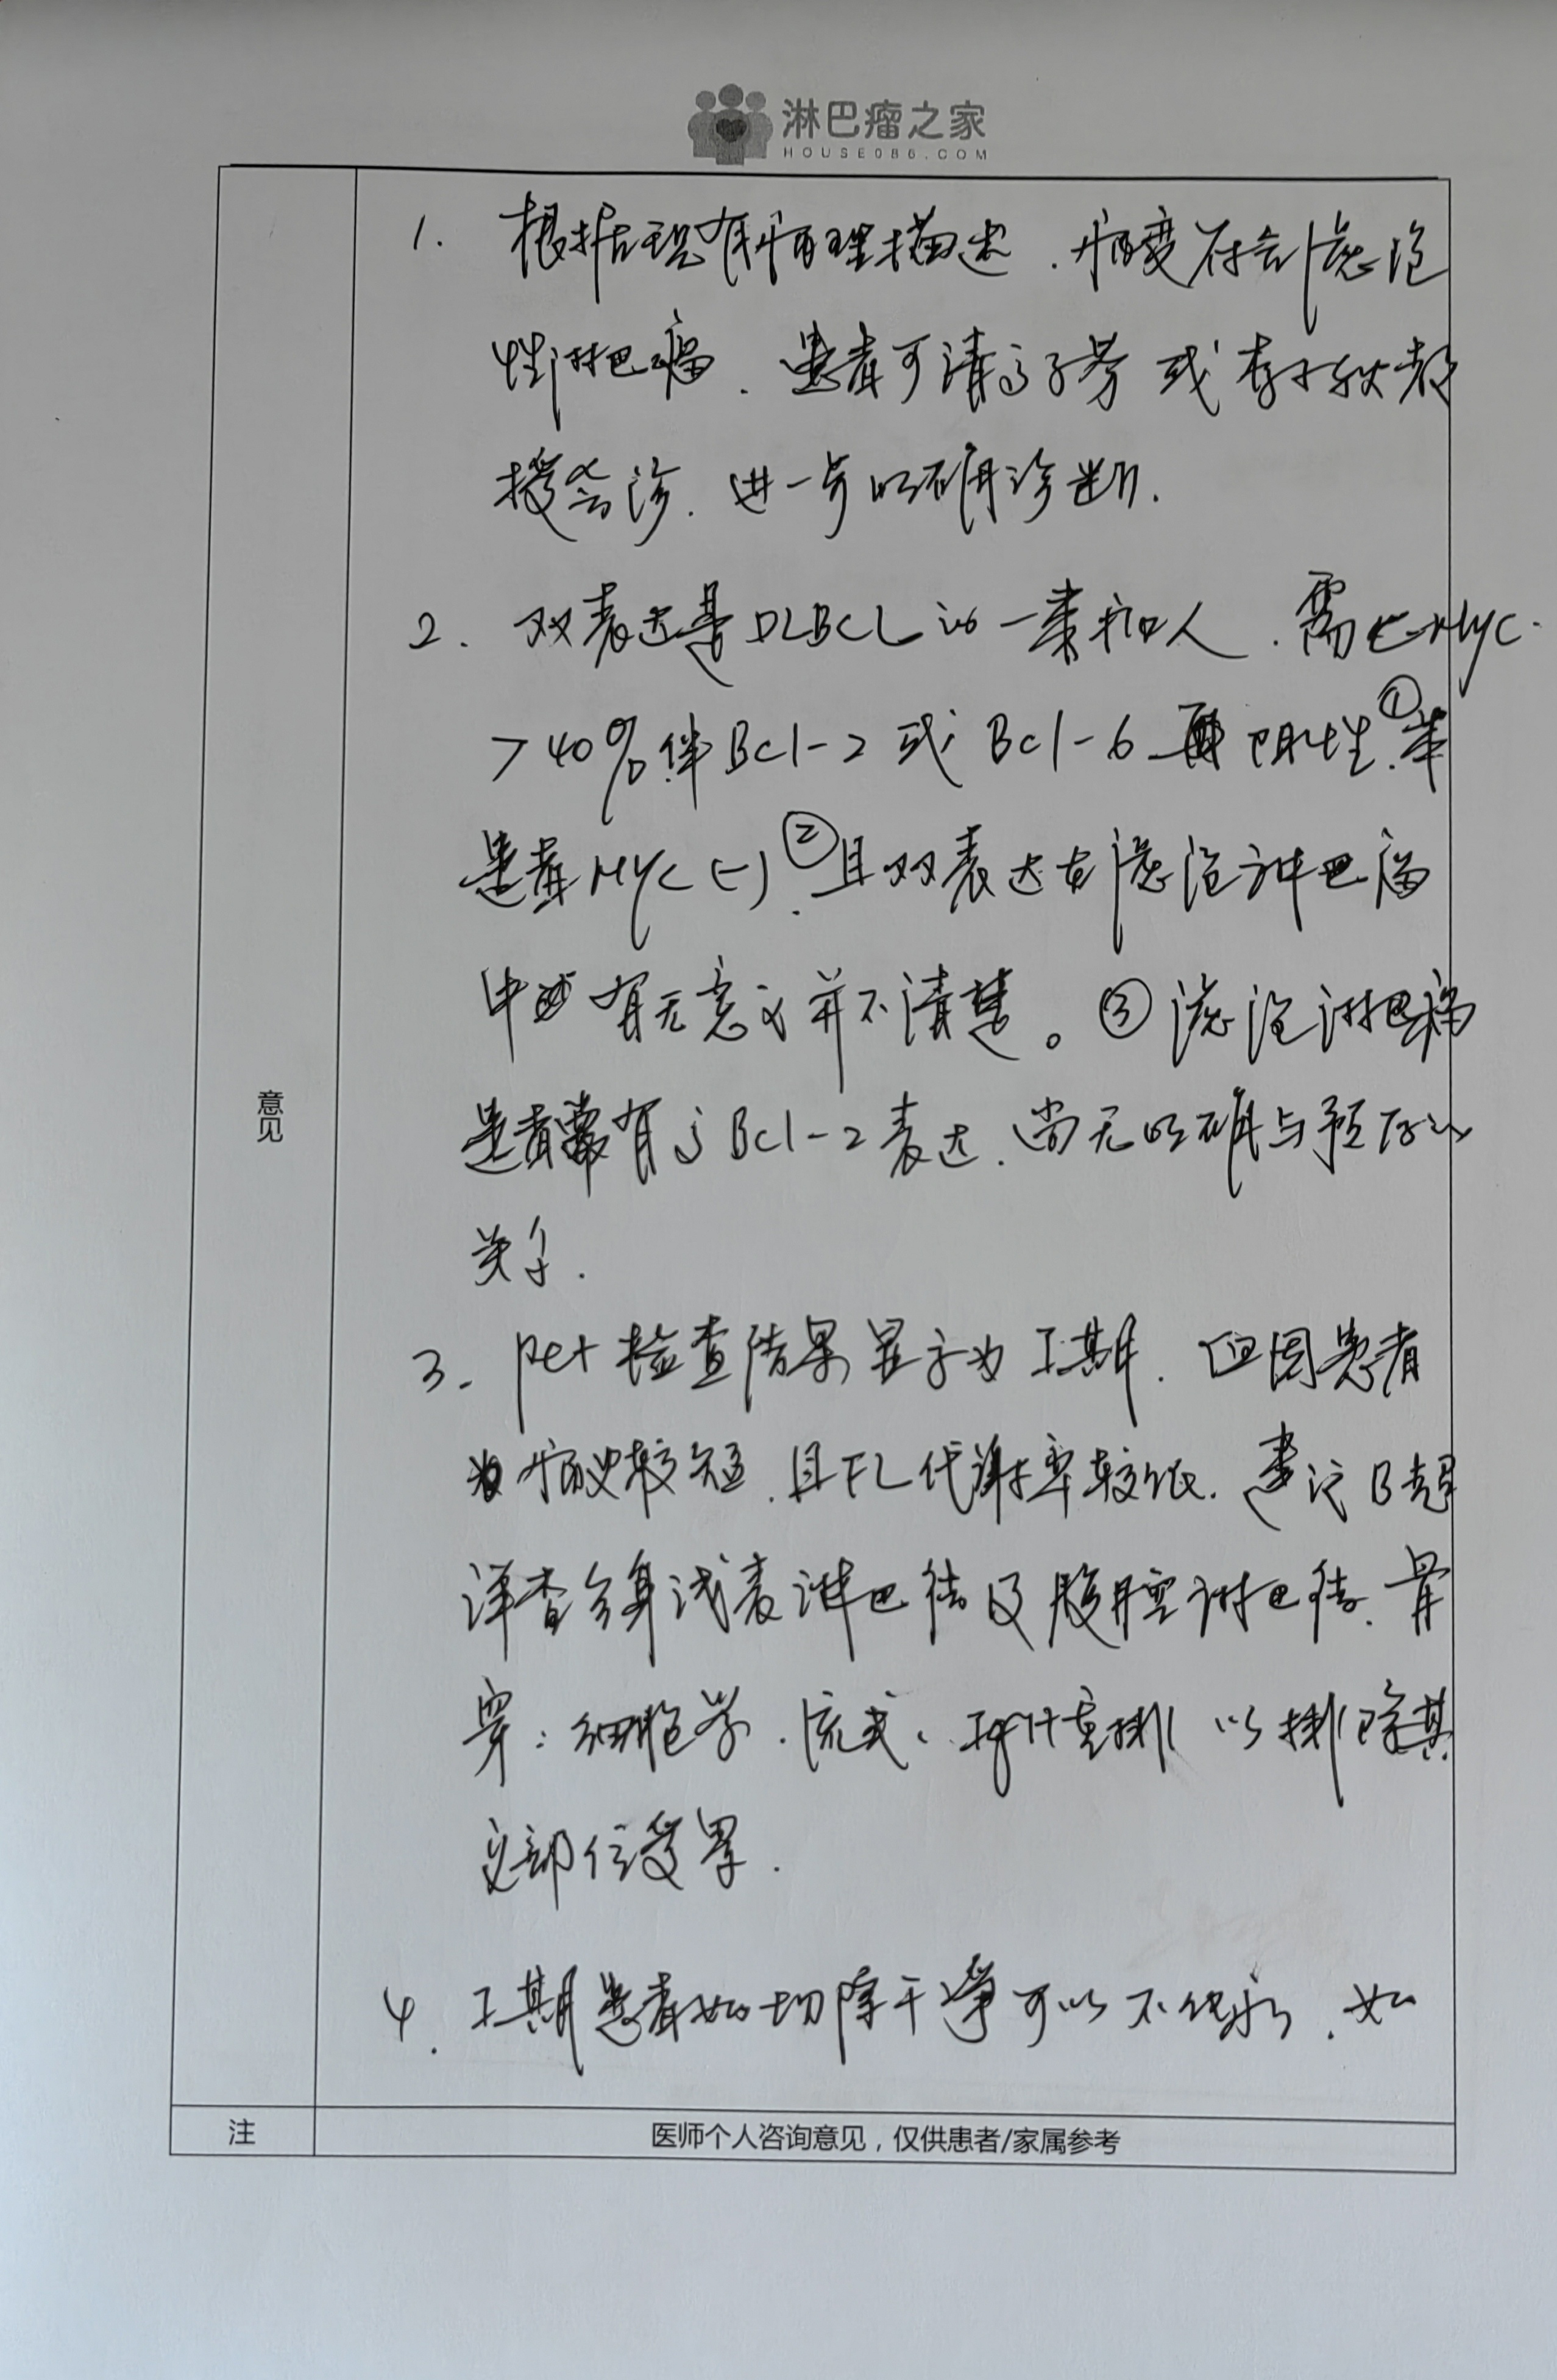 淋巴瘤之家
HOUSE086.COM
1. 根据现有病理描述，病变符合滤泡
性淋巴瘤，患者可请高子芬或李小秋教
授会诊，进一步明确诊断.
2. 双表达是DLBCL的一类扣人，需MYC
>40%伴Bcl-2或Bcl-6 阳性.①本
患者MYC(-).②且双表达在滤泡淋巴瘤
中有无意义并不清楚。③滤泡淋巴瘤
患者常有高Bcl-2表达，尚无明确与预后的
关系.
3. pet检查结果显示为I期，但因患者
病史较短，且FL代谢率较低，建议B超
详查全身浅表淋巴结及腹腔淋巴结、骨
穿：细胞学、流式、IgH重排以排除其
它部位受累.
4. I期患者如切除干净可以不化疗，如
意见
注
医师个人咨询意见，仅供患者/家属参考